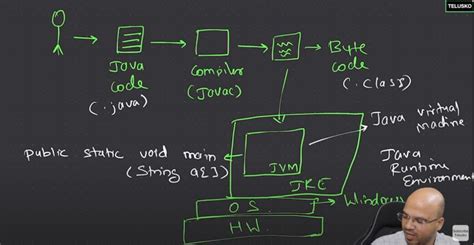 TELUSKO
Java
code
(.java)
Compiler
(Javac)
Byte
code
(.class)
Java virtual
machine
public static void main
(String a[])
JVM
JRE
Java
Runtime
Environment
OS
Windows
HW